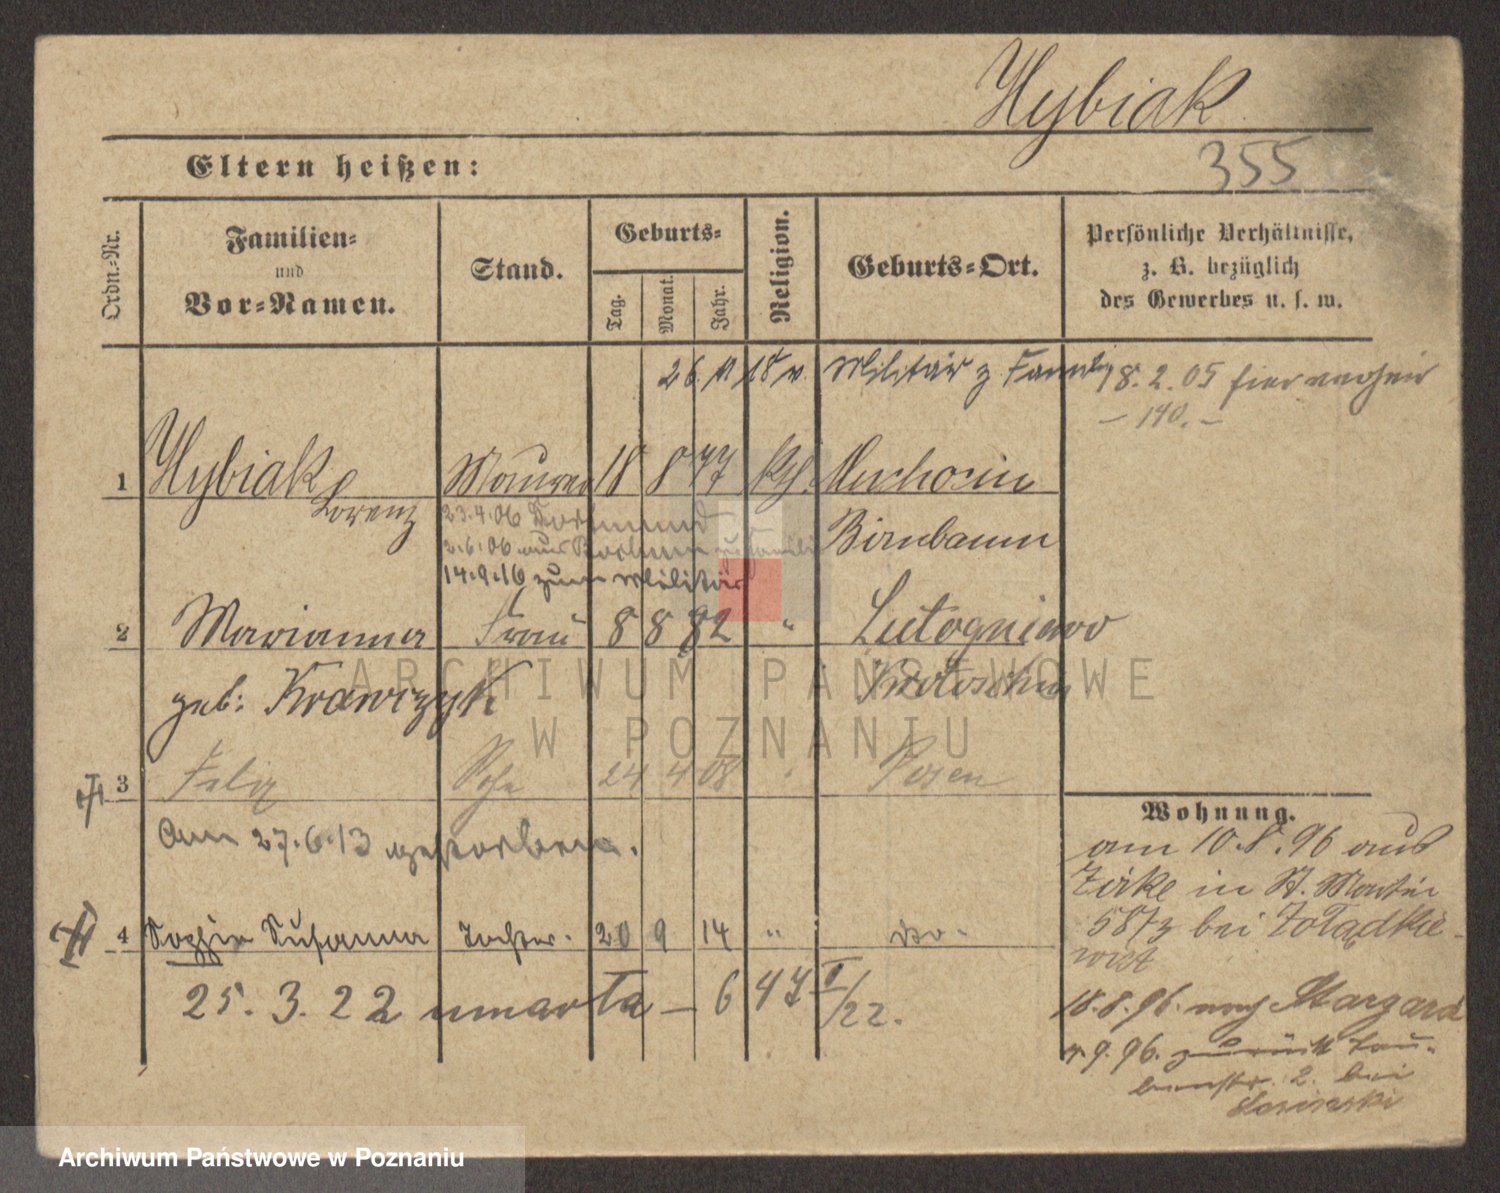 Hybiak
355
Eltern heißen:
Ordn.-Nr.
Familien-
und
Vor-Namen.
Stand.
Geburts-
Tag.
Monat.
Jahr.
Religion.
Geburts-Ort.
Persönliche Verhältnisse,
z. B. bezüglich
des Gewerbes u. s. w.
Militär z. Familie
18. 2. 05 hier
- 140. -
1 Hybiak Maurer 18 8 77 kth.
Lorenz
23.4.06 Dortmund
Birnbaum
2.6.06 aus Bochum z Familie
14.9.16 zum Militär
2 Marianna Frau 8 8 82 " Lutogniewo
geb: Krawczyk Krotoschin
3 Felix 24 4 08 Posen
Am 27.6.13 gestorben.
4 Sophie Susanna Tochter. 20 9 14 " do.
25. 3. 22 umarła — 6 47 II/22.
Wohnung.
am 10.8.96 aus
Zirke in St. Martin
58 bei Żołądkie-
wicz
18.8.96. nach Stargard
9.96. zurück Tau-
benstr. 2. bei
ARCHIWUM PAŃSTWOWE
W POZNANIU
Archiwum Państwowe w Poznaniu